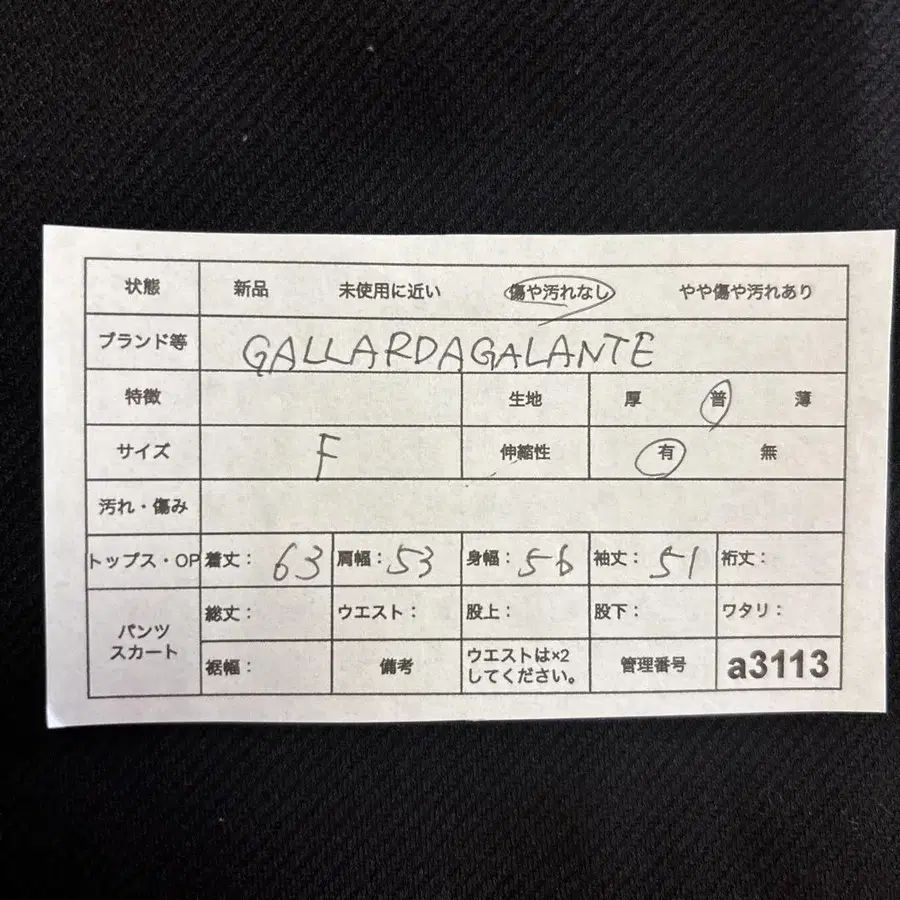 状態 新品 未使用に近い 傷や汚れなし やや傷や汚れあり
ブランド等 GALLARDAGALANTE
特徴 生地 厚 普 薄
サイズ F 伸縮性 有 無
汚れ・傷み
トップス・OP 着丈： 63 肩幅： 53 身幅： 56 袖丈： 51 裄丈：
パンツ スカート
総丈： ウエスト： 股上： 股下： ワタリ：
裾幅： 備考 ウエストは×2 してください。 管理番号 a3113